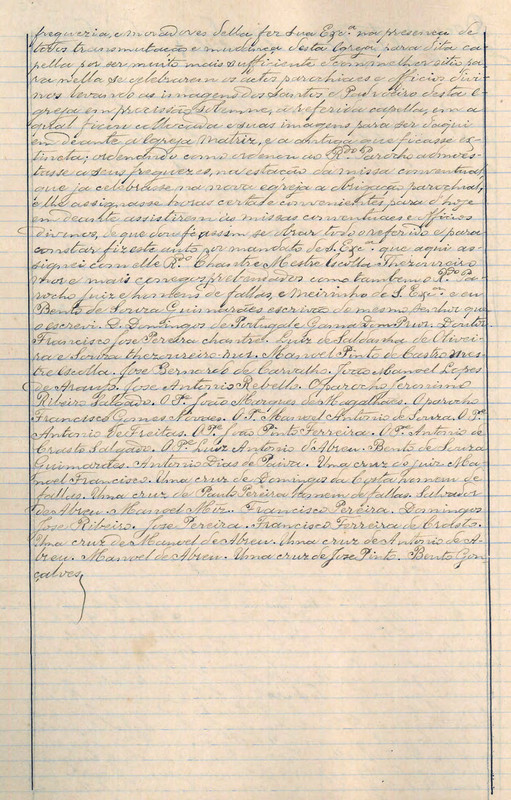 freguezia, e moradores della fez Sua Exç.ª na presença de
todos transmutação e mudança desta Igreja para dita ca-
pella por ser muito mais sufficiente e com melhor sitio pa-
ra nella se celebrarem os actos parochiaes e officios divi-
nos levando as imagens dos Santos e Padroeiro desta I-
greja em procissão solemne, a referida capella, em a
qual ficou collocada e suas imagens, para ser daqui
em deante a Igreja Matriz, e a antiga que ficasse ex-
tincta, ordenando como ordenou ao R.do Parocho admoes-
tasse a seus freguezes, na estação da missa conventual,
que ja celebrasse na nova egreja a obrigação parochial,
e lhe assignasse horas certas e convenientes, para d'hoje
em deante assistirem ás missas conventuaes e officios
divinos, de que dou fé assim se obrar todo o referido e para
constar fiz este auto por mandato de S. Exç.ª que aqui as-
signou com elle R.do Chantre Mestre Escolla Thezoureiro
Mor e mais conegos prebendados como tambem o R.do Pa-
rocho juiz e homens de fallas, e Meirinho de S. Exç.ª e eu
Bento de Souza Guimarães escrivão do mesmo Senhor que
o escrevi. D. Domingos de Portugal e Gama Dom Prior. Doutor
Francisco José Pereira chantre. Luiz de Saldanha de Olivei-
ra e Souza thezoureiro-mor. Manoel Pinto de Castro mes-
tre escolla. José Bernardo de Carvalho. João Manoel Lopes
de Araujo. José Antonio Rebello. O parocho Jeronimo
Ribeiro Salgado. O P.e João Marques de Magalhães. O parocho
Francisco Gomes Novaes. O P.e Manoel Antonio de Souza. O P.e
Antonio de Freitas. O P.e João Pinto Ferreira. O P.e Antonio de
Crasto Salgado. O P.e Luiz Antonio d'Abreu. Bento de Souza
Guimarães. Antonio Dias de Paiva. Uma cruz do juiz Ma-
noel Francisco. Uma cruz de Domingos da Costa homem de
fallas. Uma cruz de Paulo Pereira homem de fallas. Salvador
de Abreu. Manoel Miz. Francisco Pereira. Domingos
José Ribeiro. José Pereira. Francisco Ferreira de Crasto.
Uma cruz de Manoel de Abreu. Uma cruz de Antonio de A-
breu. Manoel de Abreu. Uma cruz de José Pinto. Bento Gon-
çalves